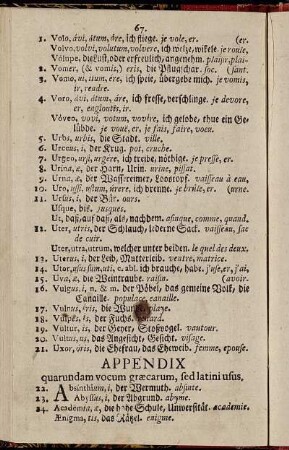 67.
1. Volo, ávi, átum, áre, ich fliege. je vole, er. (er.
Volvo, volvi, volutum, volvere, ich welze, wikele. je roule,
Volupe, die Lust, oder erfreulich, angenehm. plaisir, plai-
2. Vomer, (& vomis,) eris, die Pflugschar. soc. (sant.
3. Vomo, ui, itum, ere, ich speie, übergebe mich. je vomis,
ir, rendre.
4. Voro, ávi, átum, áre, ich fresse, verschlinge. je devore,
er, engloutis, ir.
Vóveo, vovi, votum, vovére, ich gelobe, thue ein Ge-
lübde. je voue, er, je fais, faire, voeu.
5. Urbs, urbis, die Stadt. ville.
6. Urceus, i, der Krug. pot, cruche.
7. Urgeo, ursi, urgére, ich treibe, nöthige. je presse, er.
8. Urina, æ, der Harn, Urin. urine, pissat.
9. Urna, æ, der Wassereimer, Lostopf. vaisseau à eau,
10. Uro, ussi, ustum, úrere, ich brenne. je brûle, er. (urne.
11. Ursus, i, der Bär. ours.
Usque, bis. jusques.
Ut, daß, auf daß, als, nachdem. afinque, comme, quand.
12. Uter, utris, der Schlauch, lederne Sack. vaisseau, sac
de cuir.
Uter, utra, utrum, welcher unter beiden. le quel des deux.
13. Uterus, i, der Leib, Mutterleib. ventre, matrice.
14. Utor, usus sum, uti, c. abl. ich brauche, habe. j'use, er, j'ai,
15. Uva, æ, die Weintraube. raisin. (avoir.
16. Vulgus, i, n. & m. der Pöbel, das gemeine Volk, die
Canaille. populace, canaille.
17. Vulnus, eris, die Wunde. playe.
18. Vulpes, is, der Fuchs. renard.
19. Vultur, is, der Geyer, Stoßvogel. vautour.
20. Vultus, us, das Angesicht, Gesicht. visage.
21. Uxor, óris, die Ehefrau, das Eheweib. femme, epouse.
APPENDIX
quarundam vocum græcarum, sed latini usus,
22. Absinthium, i, der Wermuth. absinte.
23. Abyssus, i, der Abgrund. abyme.
24. Academia, æ, die hohe Schule, Universität. academie.
Ænigma, tis, das Rätzel. enigme.